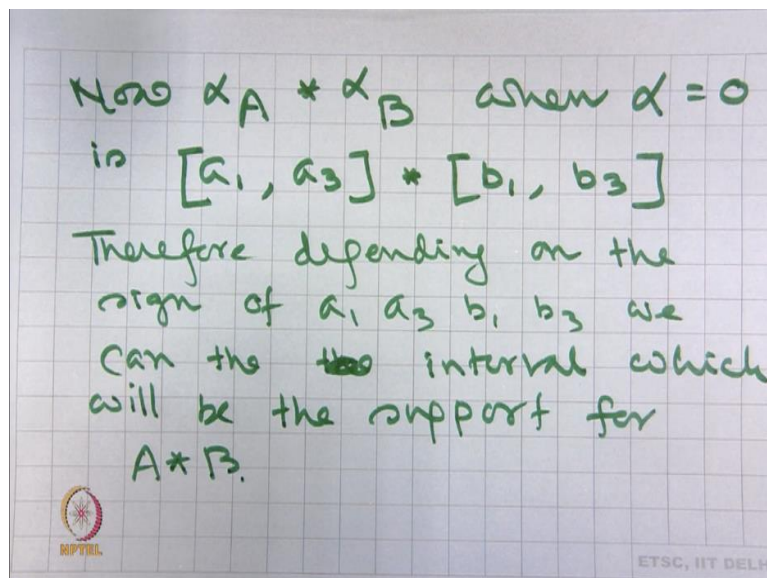 Now αA * αB when α = 0
is [a1, a3] * [b1, b3]
Therefore depending on the
sign of a1 a3 b1 b3 we
can the interval which
will be the support for
A * B.
NPTEL
ETSC, IIT DELH